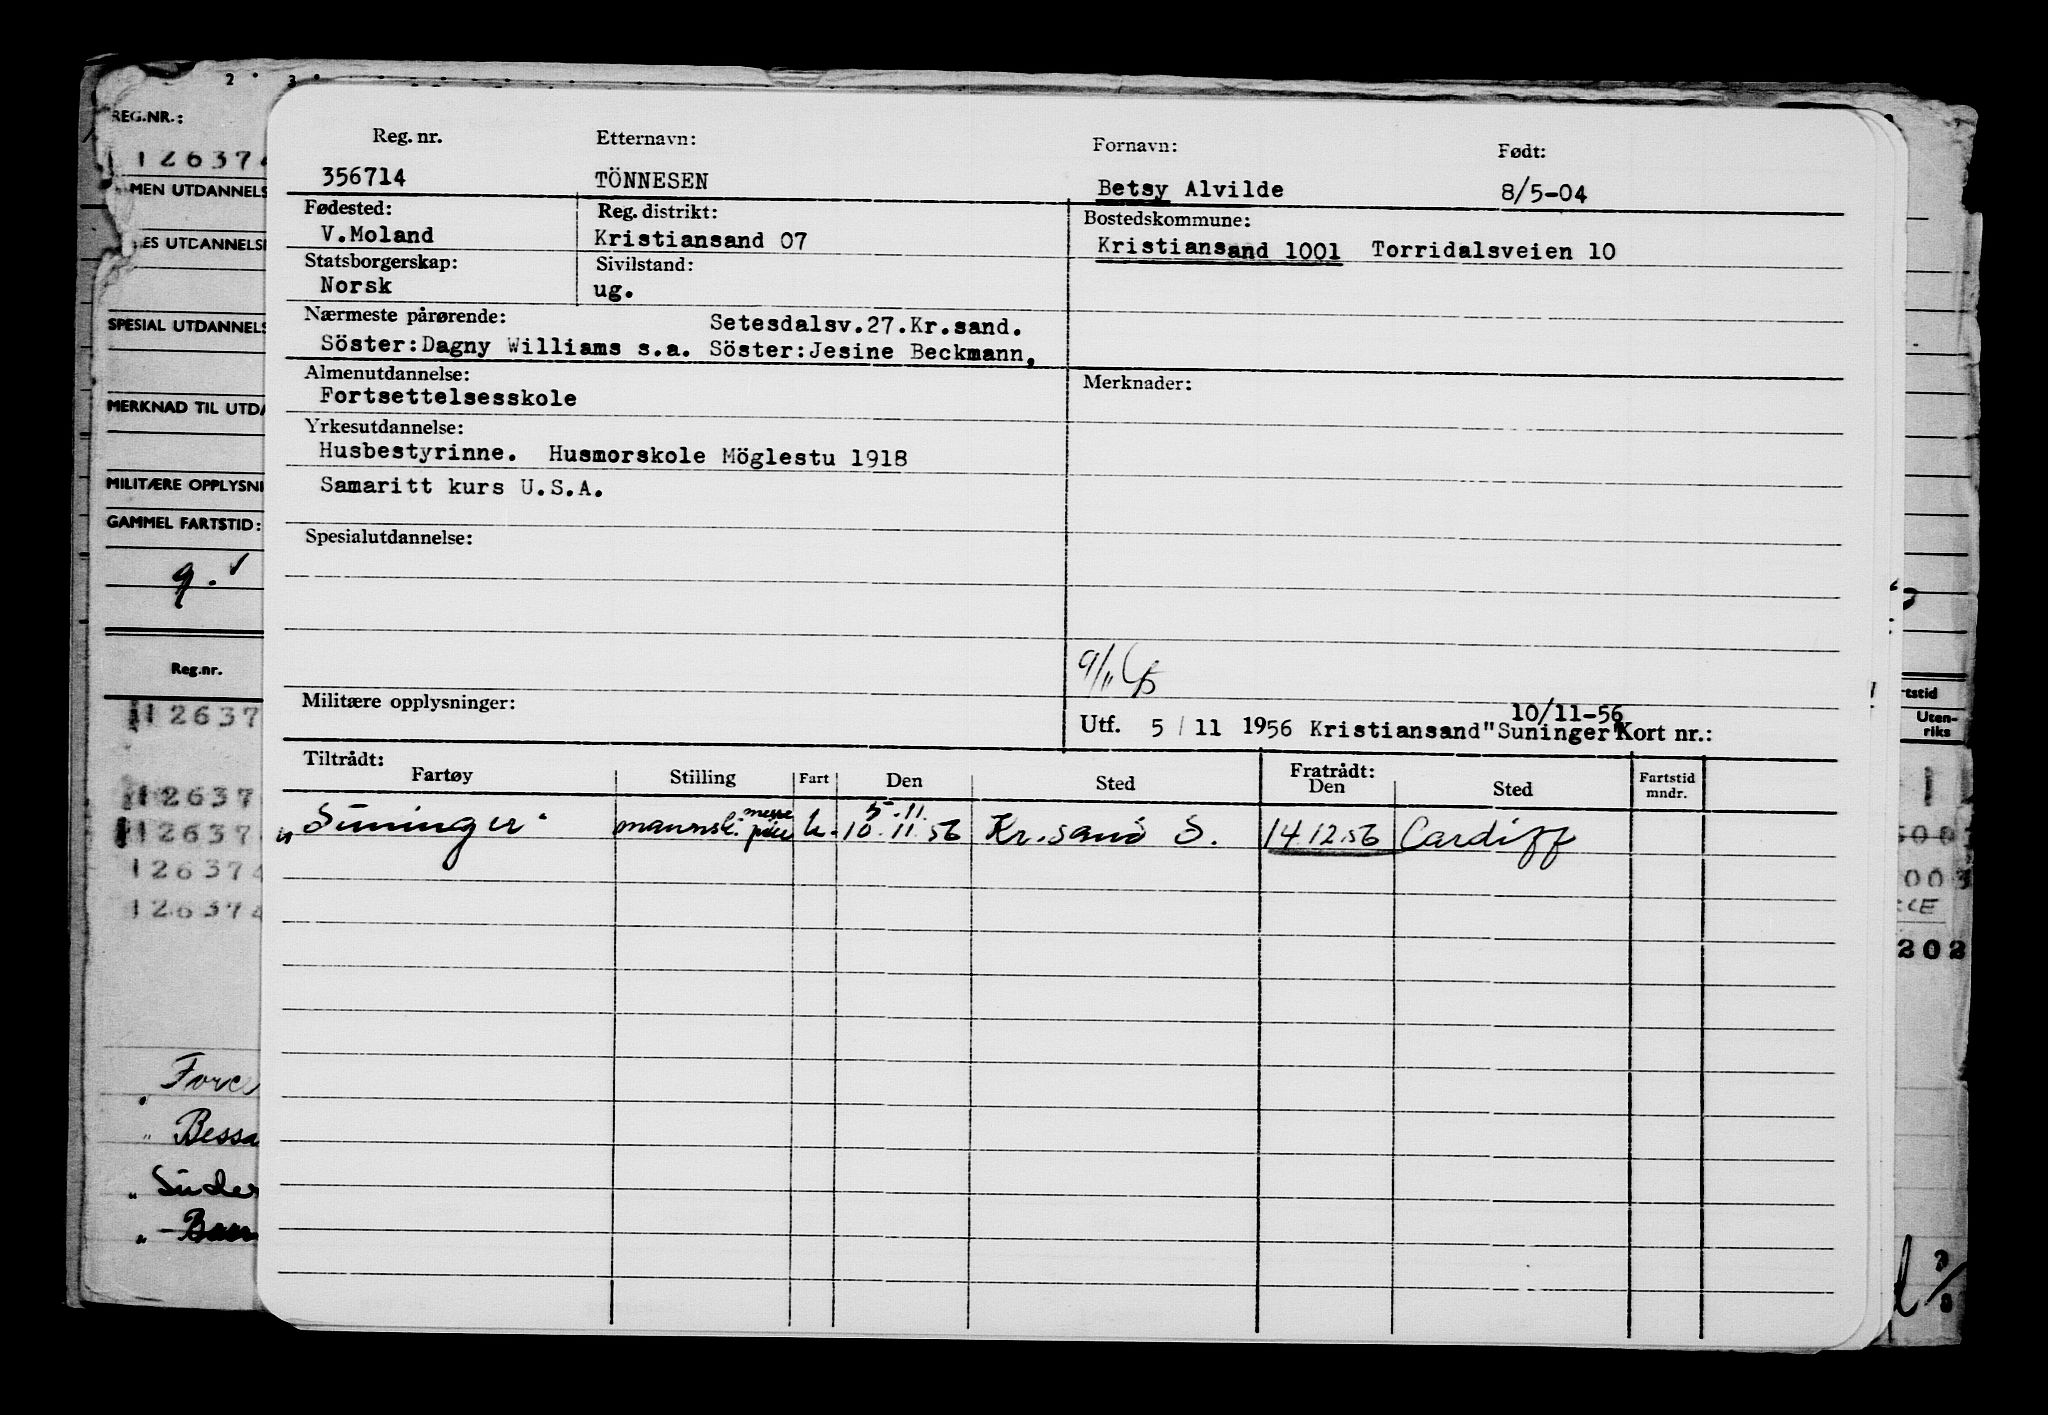 REG.NR.:
126374
MEN UTDANNELS
ES UTDANNELS
SPESIAL UTDANNELS
MERKNAD TIL UTDA
MILITÆRE OPPLYSNI
GAMMEL FARTSTID:
9.
Reg.nr.
12637
12637
12637
126374
126374
Bessa
Süder
Reg. nr. Etternavn: Fornavn: Født:
356714 TÖNNESEN Betsy Alvilde 8/5-04
Fødested: Reg. distrikt: Bostedskommune:
V.Moland Kristiansand 07 Kristiansand 1001 Torridalsveien 10
Statsborgerskap: Sivilstand:
Norsk ug.
Nærmeste pårørende: Setesdalsv.27.Kr.sand.
Söster:Dagny Williams s.a. Söster:Jesine Beckmann,
Almenutdannelse: Merknader:
Fortsettelsesskole
Yrkesutdannelse:
Husbestyrinne. Husmorskole Möglestu 1918
Samaritt kurs U.S.A.
Spesialutdannelse:
9/11
Militære opplysninger:
10/11-56
Utf. 5 / 11 1956 Kristiansand "Suninger" Kort nr.:
Tiltrådt: Fratrådt:
Fartøy Stilling Fart Den Sted Den Sted Fartstid mndr.
messe 5.11.
"Suninger" pike u. 10.11.56 Kr.sand S. 14.12.56 Cardiff
rtstid
Uten-
riks
1
003
202